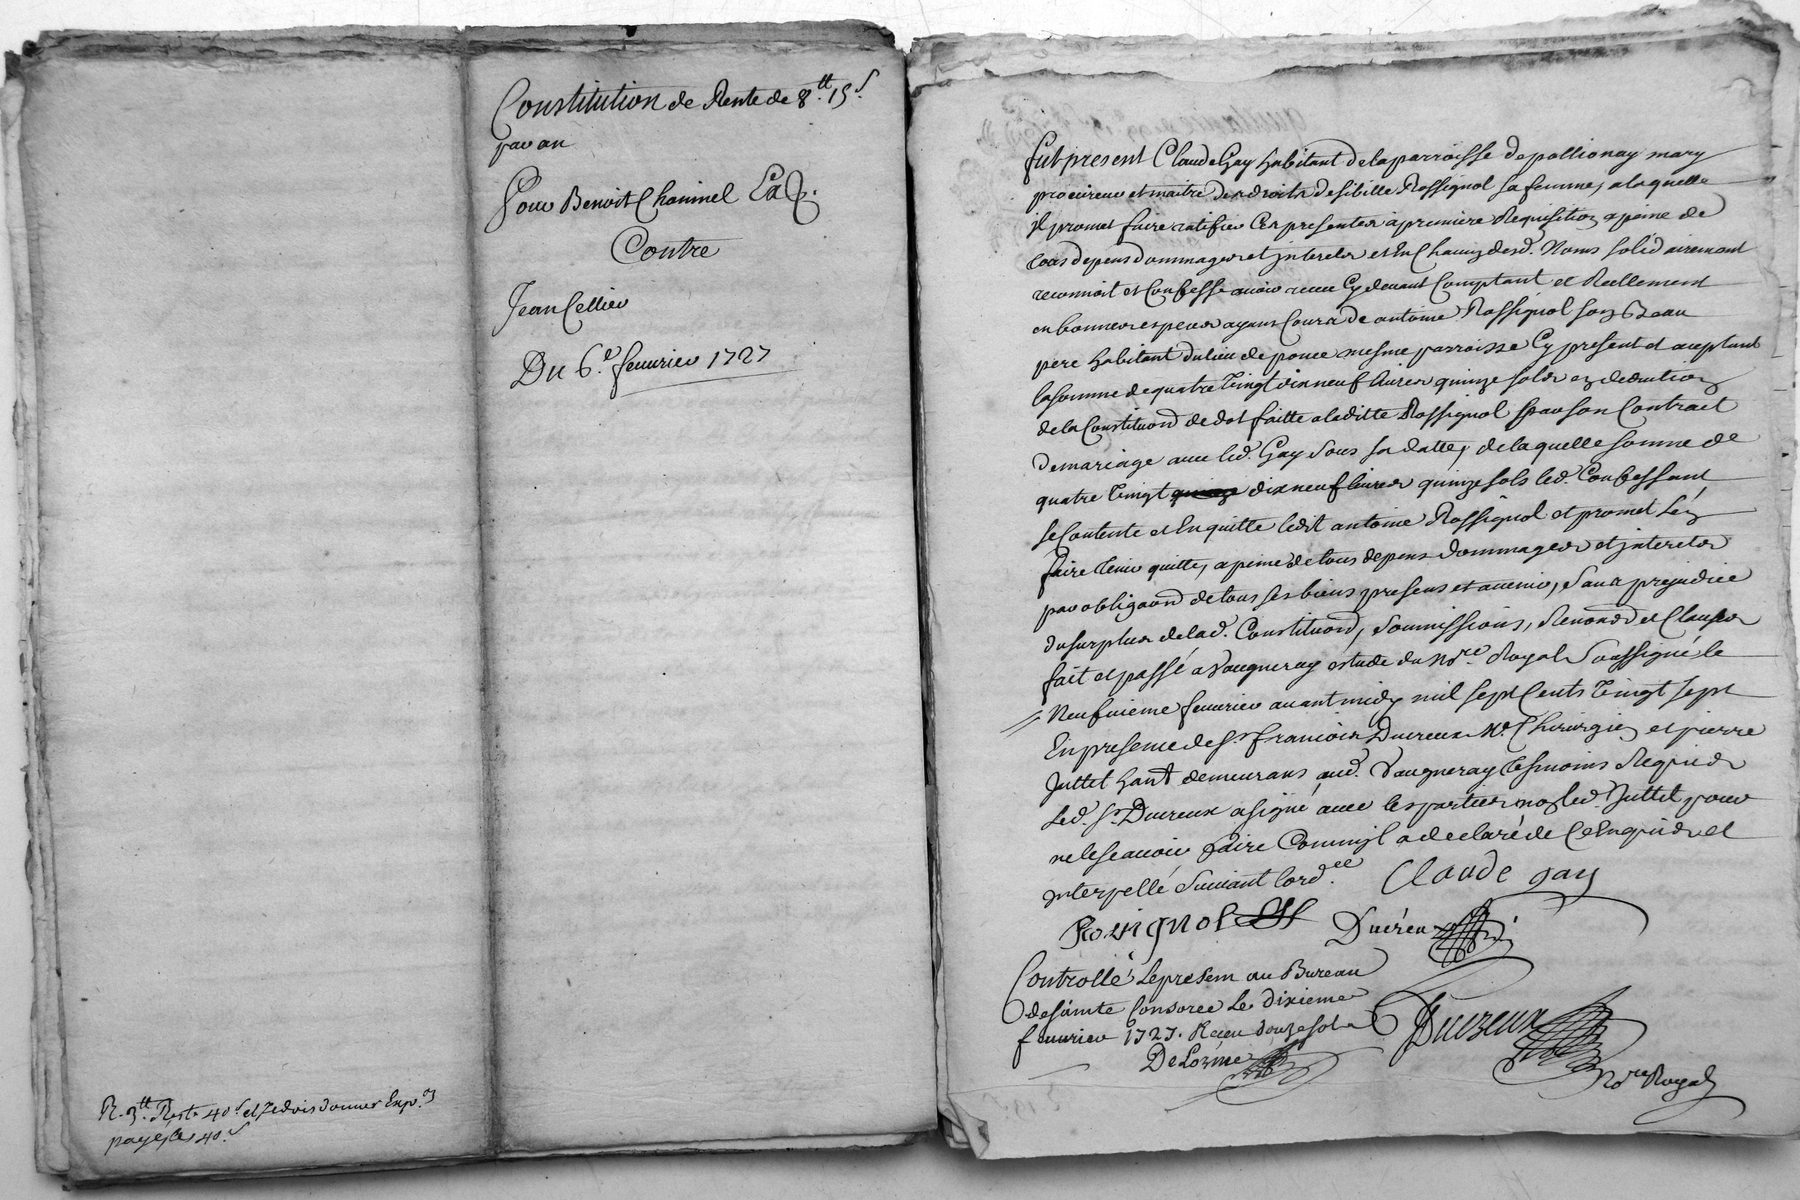 Constitution de Rente de 8.tt 15.s
par an
Pour Benoit Chaninel
Contre
Jean Cellier
Du 6.e feuurier 1727
R. 3.tt Reste 40.s et Je dois donner Exp.on
payé les 40.s
fut present Claude Gay habitant de la parroisse de pollionay mary
procureur et maitre des droits de sibille Rossignol sa femme, a laquelle
il promet faire ratifier Ces presentes a premiere Requisition a peine de
tous depens dommages et jnterets et En Chacun desd. Noms solidairement
reconnoit et Confesse auoir receu Cy deuant Comptant et Reellement
en bonnes especes ayant Cours de antoine Rossignol son Beau
pere habitant du lieu de ponce mesme parroisse Cy present et aceptant
la somme de quatre Vingt dix neuf liures quinze sols en deduction
de la Constituon de dot faitte a laditte Rossignol par son Contract
de mariage auec led. Gay sous sa datte, de laquelle somme de
quatre Vingt dix neuf liures quinze sols led. Confessant
se Contente et En quitte ledit antoine Rossignol et promet L'en
faire tenir quitte, a peine de tous depens dommages et jnterets
par obligaon de tous ses biens presens et auenir, sans prejudice
du surplus de lad. Constituon, soumissions, Renonons et Clauses
fait et passé a Vaugneray estude du no.re Royal soussigné le
Neufuieme feuurier auant midy mil sept Cents Vingt sept
En presence de s.r francois Ducreux M.e Chirurgien et pierre
Juttet hant demeurans aud. Vaugneray tesmoins Requis
Led. s.r Ducreux a signé auec les parties non led. Juttet pour
ne le scauoir faire Comm'il a declaré de Ce Enquis et
jnterpellé Suiuant lord.ce
Claude gay
Rosignol
Ducreux
Controllé Le present au Bureau
de sainte Consorce Le dixieme
feuurier 1727. Receu douze sols
DeLorme
Ducreux
No.re Royal